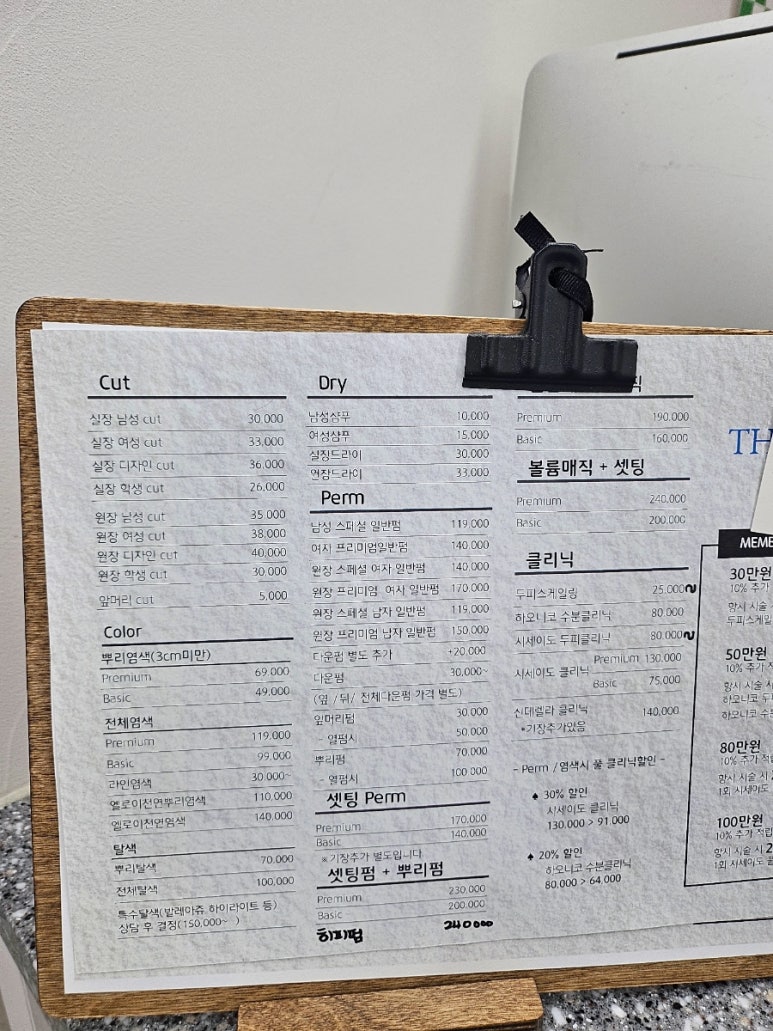 Cut
실장 남성 cut 30,000
실장 여성 cut 33,000
실장 디자인 cut 36,000
실장 학생 cut 26,000
원장 남성 cut 35,000
원장 여성 cut 38,000
원장 디자인 cut 40,000
원장 학생 cut 30,000
앞머리 cut 5,000
Color
뿌리염색(3cm미만)
Premium 69,000
Basic 49,000
전체염색
Premium 119,000
Basic 99,000
라인염색 30,000~
옐로이천연뿌리염색 110,000
옐로이천연염색 140,000
탈색
뿌리탈색 70,000
전체탈색 100,000
특수탈색(발레아쥬, 하이라이트 등)
상담 후 결정(150,000~ )
Dry
남성샴푸 10,000
여성샴푸 15,000
실장드라이 30,000
원장드라이 33,000
Perm
남성 스페셜 일반펌 119,000
여자 프리미엄일반펌 140,000
원장 스페셜 여자 일반펌 140,000
원장 프리미엄 여자 일반펌 170,000
원장 스페셜 남자 일반펌 119,000
원장 프리미엄 남자 일반펌 150,000
다운펌 별도 추가 +20,000
다운펌 30,000~
(옆 /뒤/ 전체다운펌 가격 별도)
앞머리펌 30,000
- 열펌시 50,000
뿌리펌 70,000
- 열펌시 100,000
셋팅 Perm
Premium 170,000
Basic 140,000
※기장추가 별도입니다
셋팅펌 + 뿌리펌
Premium 230,000
Basic 200,000
240000
직
Premium 190,000
Basic 160,000
볼륨매직 + 셋팅
Premium 240,000
Basic 200,000
클리닉
두피스케일링 25,000~
하오니코 수분클리닉 80,000
시세이도 두피클리닉 80,000~
시세이도 클리닉 Premium 130,000
Basic 75,000
신데렐라 클리닉 140,000
*기장추가있음
- Perm /염색시 풀 클리닉할인 -
♠ 30% 할인
시세이도 클리닉
130,000 > 91,000
♠ 20% 할인
하오니코 수분클리닉
80,000 > 64,000
TH
MEMB
30만원
10% 추가
항시 시술
두피스케일
50만원
10% 추가 적
항시 시술 시
하오니코 두
하오니코 수
80만원
10% 추가 적립
항시 시술 시
1회 시세이도
100만원
10% 추가 적립
항시 시술 시 2
1회 시세이도